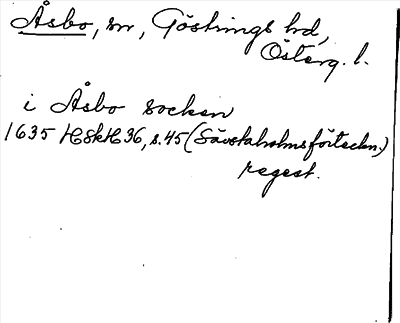 Åsbo, sn, Göstrings hd,
Österg. l.
i Åsbo socken
1635 HSkH 36, s. 45 (Sävstaholmsförteckn.)
regest.